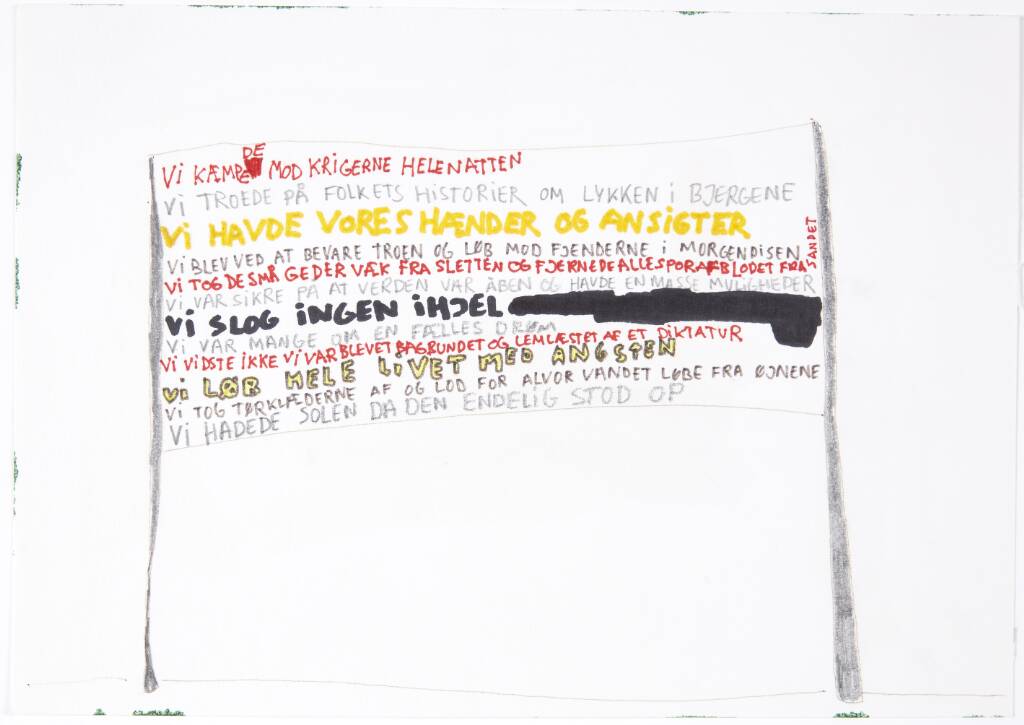 Vi KÆMPEDE MOD KRIGERNE HELE NATTEN
Vi TROEDE PÅ FOLKETS HISTORIER OM LYKKEN i BJERGENE
Vi HAVDE VORES HÆNDER OG ANSIGTER
Vi BLEV VED AT BEVARE TROEN OG LØB MOD FJENDERNE i MORGENDISEN
Vi TOG DE SMÅ GEDER VÆK FRA SLETTEN OG FJERNEDE ALLE SPOR AF BLODET FRA SANDET
Vi VAR SIKRE PÅ AT VERDEN VAR ÅBEN OG HAVDE EN MASSE MULIGHEDER
Vi SLOG iNGEN iHJEL
Vi VAR MANGE OM EN FÆLLES DRØM
Vi ViDSTE iKKE Vi VAR BLEVET BAGBUNDET OG LEMLÆSTET AF ET DiKTATUR
Vi LØB HELE LiVET MED ANGSTEN
Vi TOG TØRKLÆDERNE AF OG LOD FOR ALVOR VANDET LØBE FRA ØJNENE
Vi HADEDE SOLEN DA DEN ENDELIG STOD OP